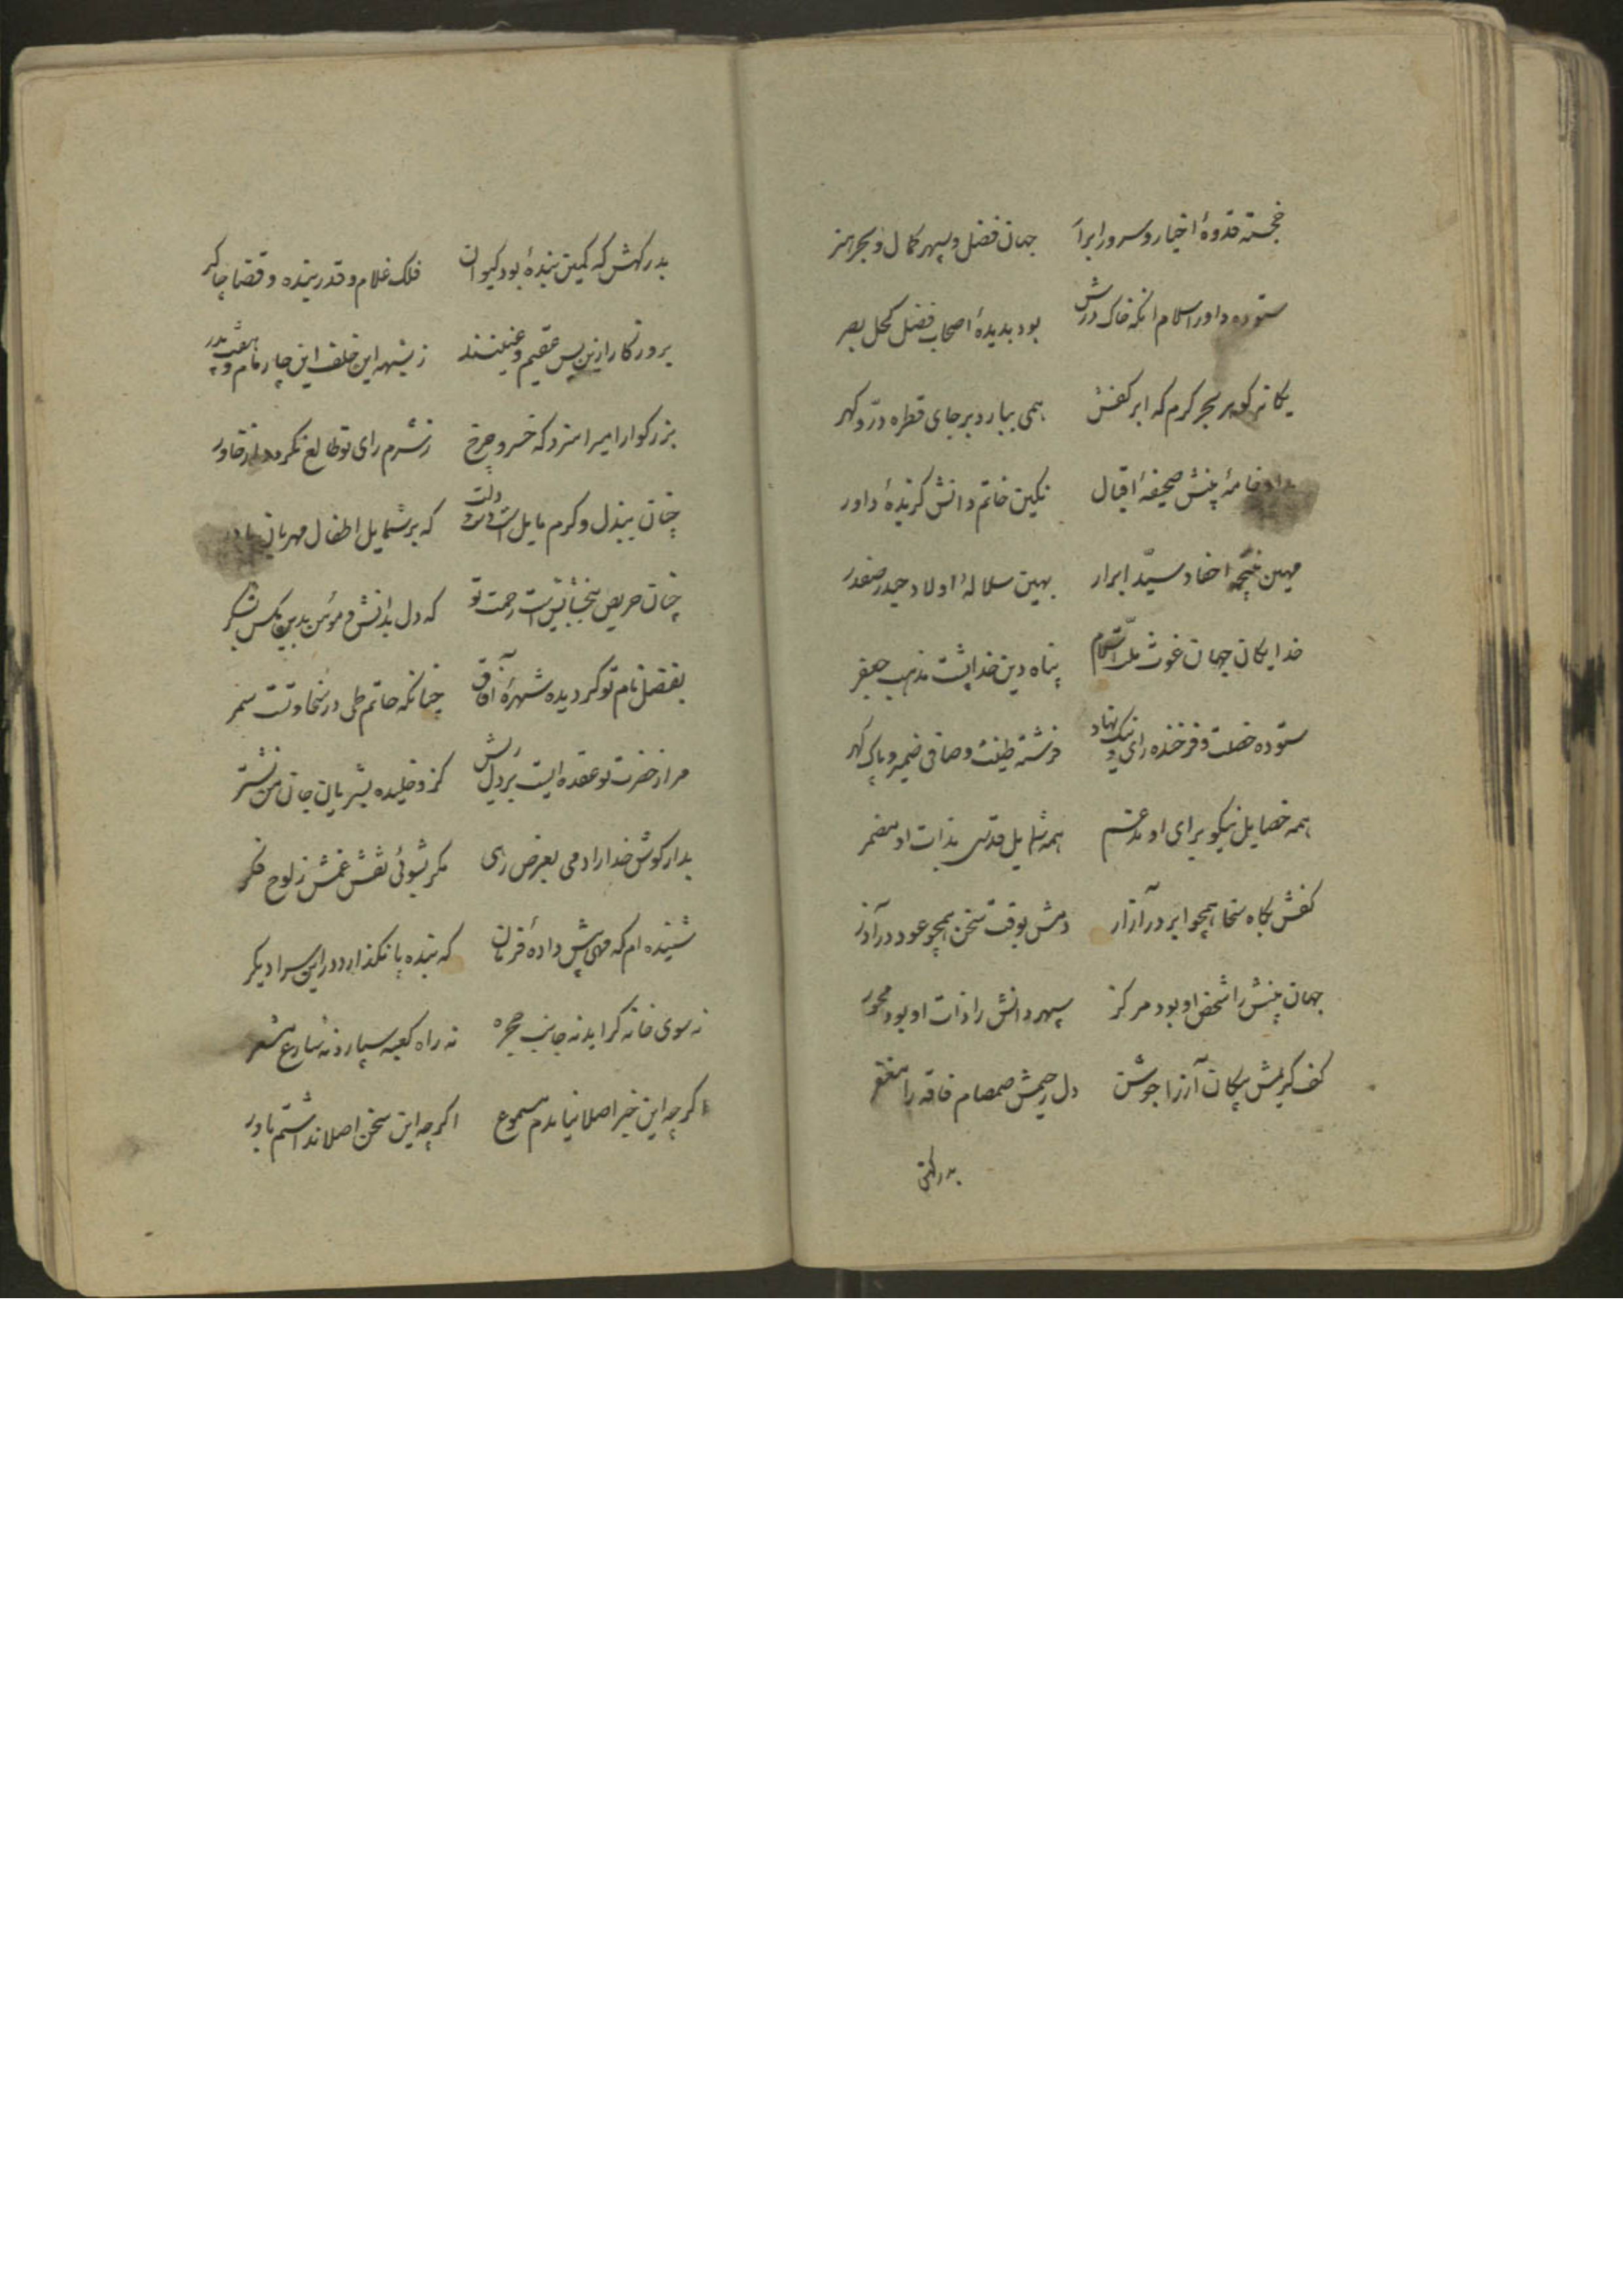 خجسته قدوهٔ اخیار و سرور ابرار جهان فضل و سپهر کمال و بحر هنر
ستوده داور اسلام انکه خاک درش بود بدیدهٔ اصحاب فضل کحل بصر
یکانه کوهر بحر کرم که ابر کفش همی ببارد بر جای قطره درّ و کهر
خامهٔ بینش صحیفهٔ اقبال نکین خاتم دانش کزیدهٔ داور
مهین نتیجهٔ احفاد سیّد ابرار بهین سلالهٔ اولاد حیدر صفدر
خدایکان جهان غوث ملّت اسلام پناه دین خدا پشت مذهب جعفر
ستوده خصلت و فرخنده رای و نیک نهاد فرشته طینت و صافی ضمیر و پاک کهر
همه خصایل نیکو برای او مدغم همه شمایل قدسی بذات او مضمر
کفش بکاه سخا همچو ابر در آزار دمش بوقت سخن همچو عود در آذر
جهان بینش را شخص او بود مرکز سپهر دانش را ذات او بود محور
کف کریمش پیکان آز را جوشن دل رحیمش صمصام فاقه را مغفر
بدرکهش
بدرکهش که کمین بندهٔ بود کیوان فلک غلام و قدر بنده و قضا چاکر
بروزکار ازین پس عقیم و عنینند ز شبه این خلف این چار مام و هفت پدر
بزرکوار امیرا سزد که خسرو چرخ ز شرم رای تو طالع نکردد از خاور
چنان ببذل و کرم مایل است دلت که بر شمایل اطفال مهربان مادر
چنان حریص ببخشایش است رحمت تو که دل بدانش و مؤمن بدین مکس بشکر
بفضل نام تو کردیده شهرهٔ آفاق چنانکه حاتم طی در سخاوتست سمر
مرا ز حضرت تو عقده ایست بر دل ریش کز و خلیده بشریان جان من نشتر
بدار کوش خدا را دمی بعرض رهی مکر بشوئی نقش غمش ز لوح فکر
شنیده ام که دادهٔ فرمان که بنده پا نکذارد در این سرا دیکر
نه سوی خانه کراید نه جانب حجره نه راه کعبه سپارد نه شارع مشعر
اکرچه این خبر اصلا نیامدم مسموع اکرچه این سخن اصلا نداشتم باور